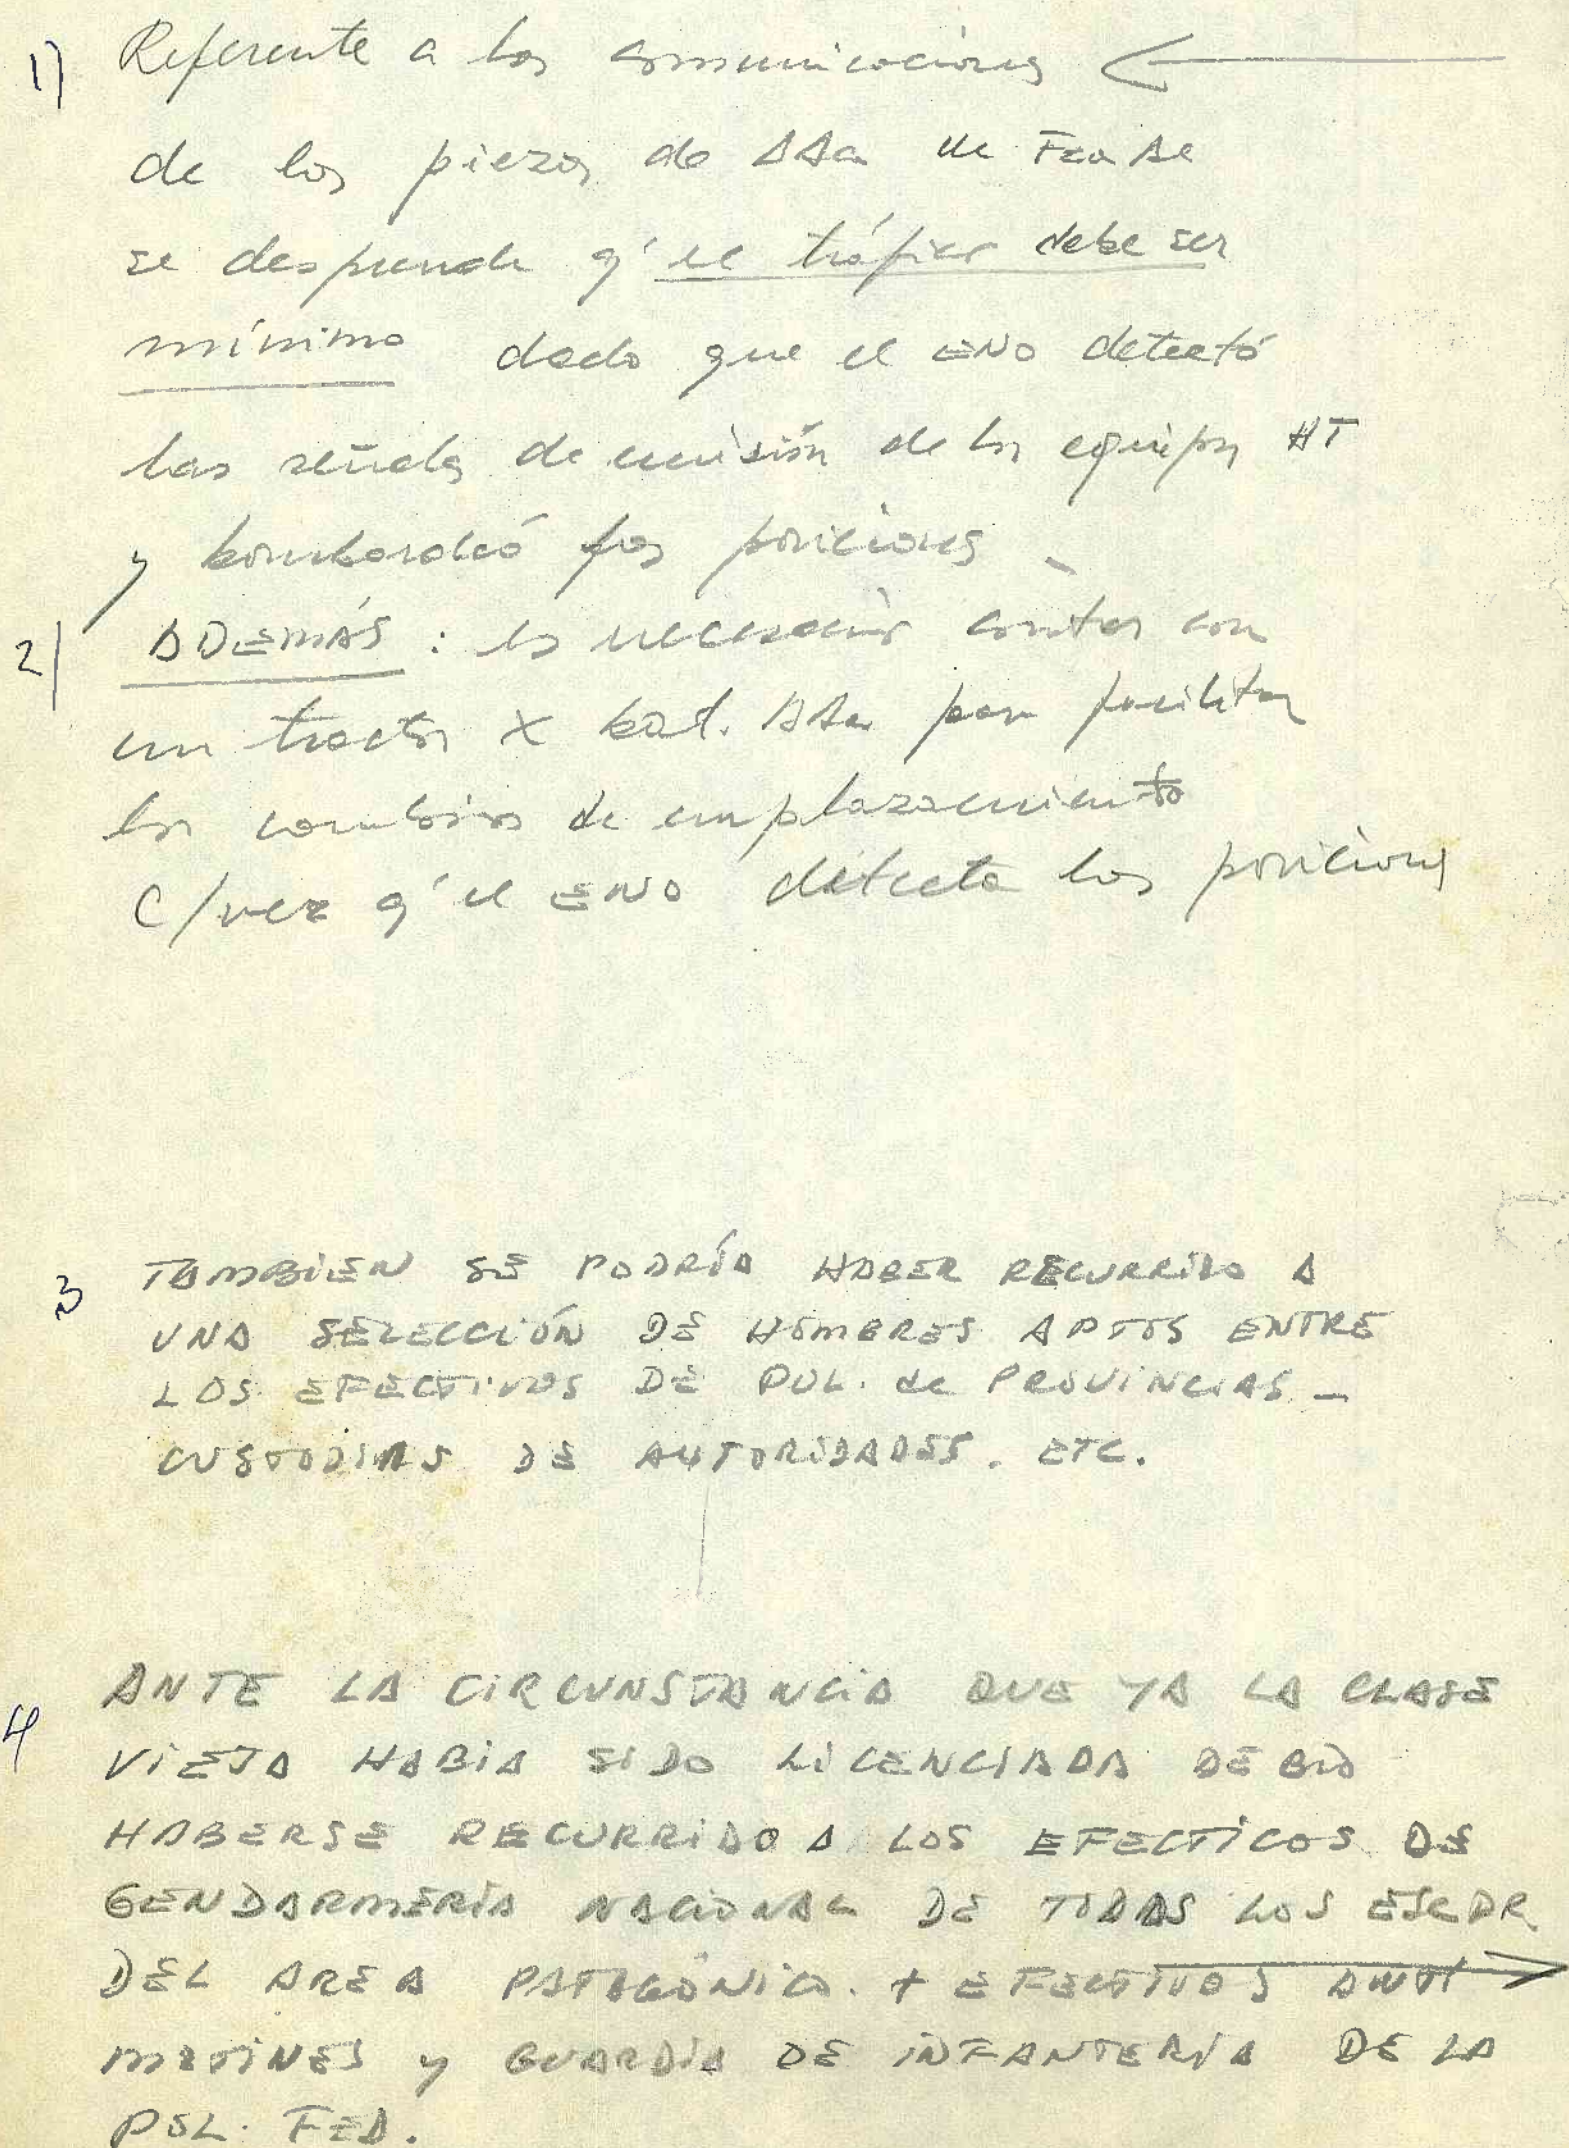 1) Referente a las comunicaciones
de las piezas de AAa de Fza Ae
se desprende q' el tráfico debe ser
mínimo dado que el ENO detectó
las señales de emisión de los equipos HT
y bombardeó las posiciones –
2) ADEMÁS : es necesario contar con
un tractor x bat. AAa para facilitar
los cambios de emplazamiento
C/vez q' el ENO detecta las posiciones
3 TAMBIEN SE PODRÍA HABER RECURRIDO A
UNA SELECCIÓN DE HOMBRES APTOS ENTRE
LOS EFECTIVOS DE POL. de PROVINCIAS –
CUSTODIAS DE AUTORIDADES. ETC.
4 ANTE LA CIRCUNSTANCIA QUE YA LA CLASE
VIEJA HABIA SIDO LICENCIADA DEBIO
HABERSE RECURRIDO A LOS EFECTICOS DE
GENDARMERÍA NACIONAL DE TODAS LOS ESCDR
DEL AREA PATAGÓNICA. + EFECTIVOS ANTI
MOTINES y GUARDIA DE INFANTERÍA DE LA
POL. FED.